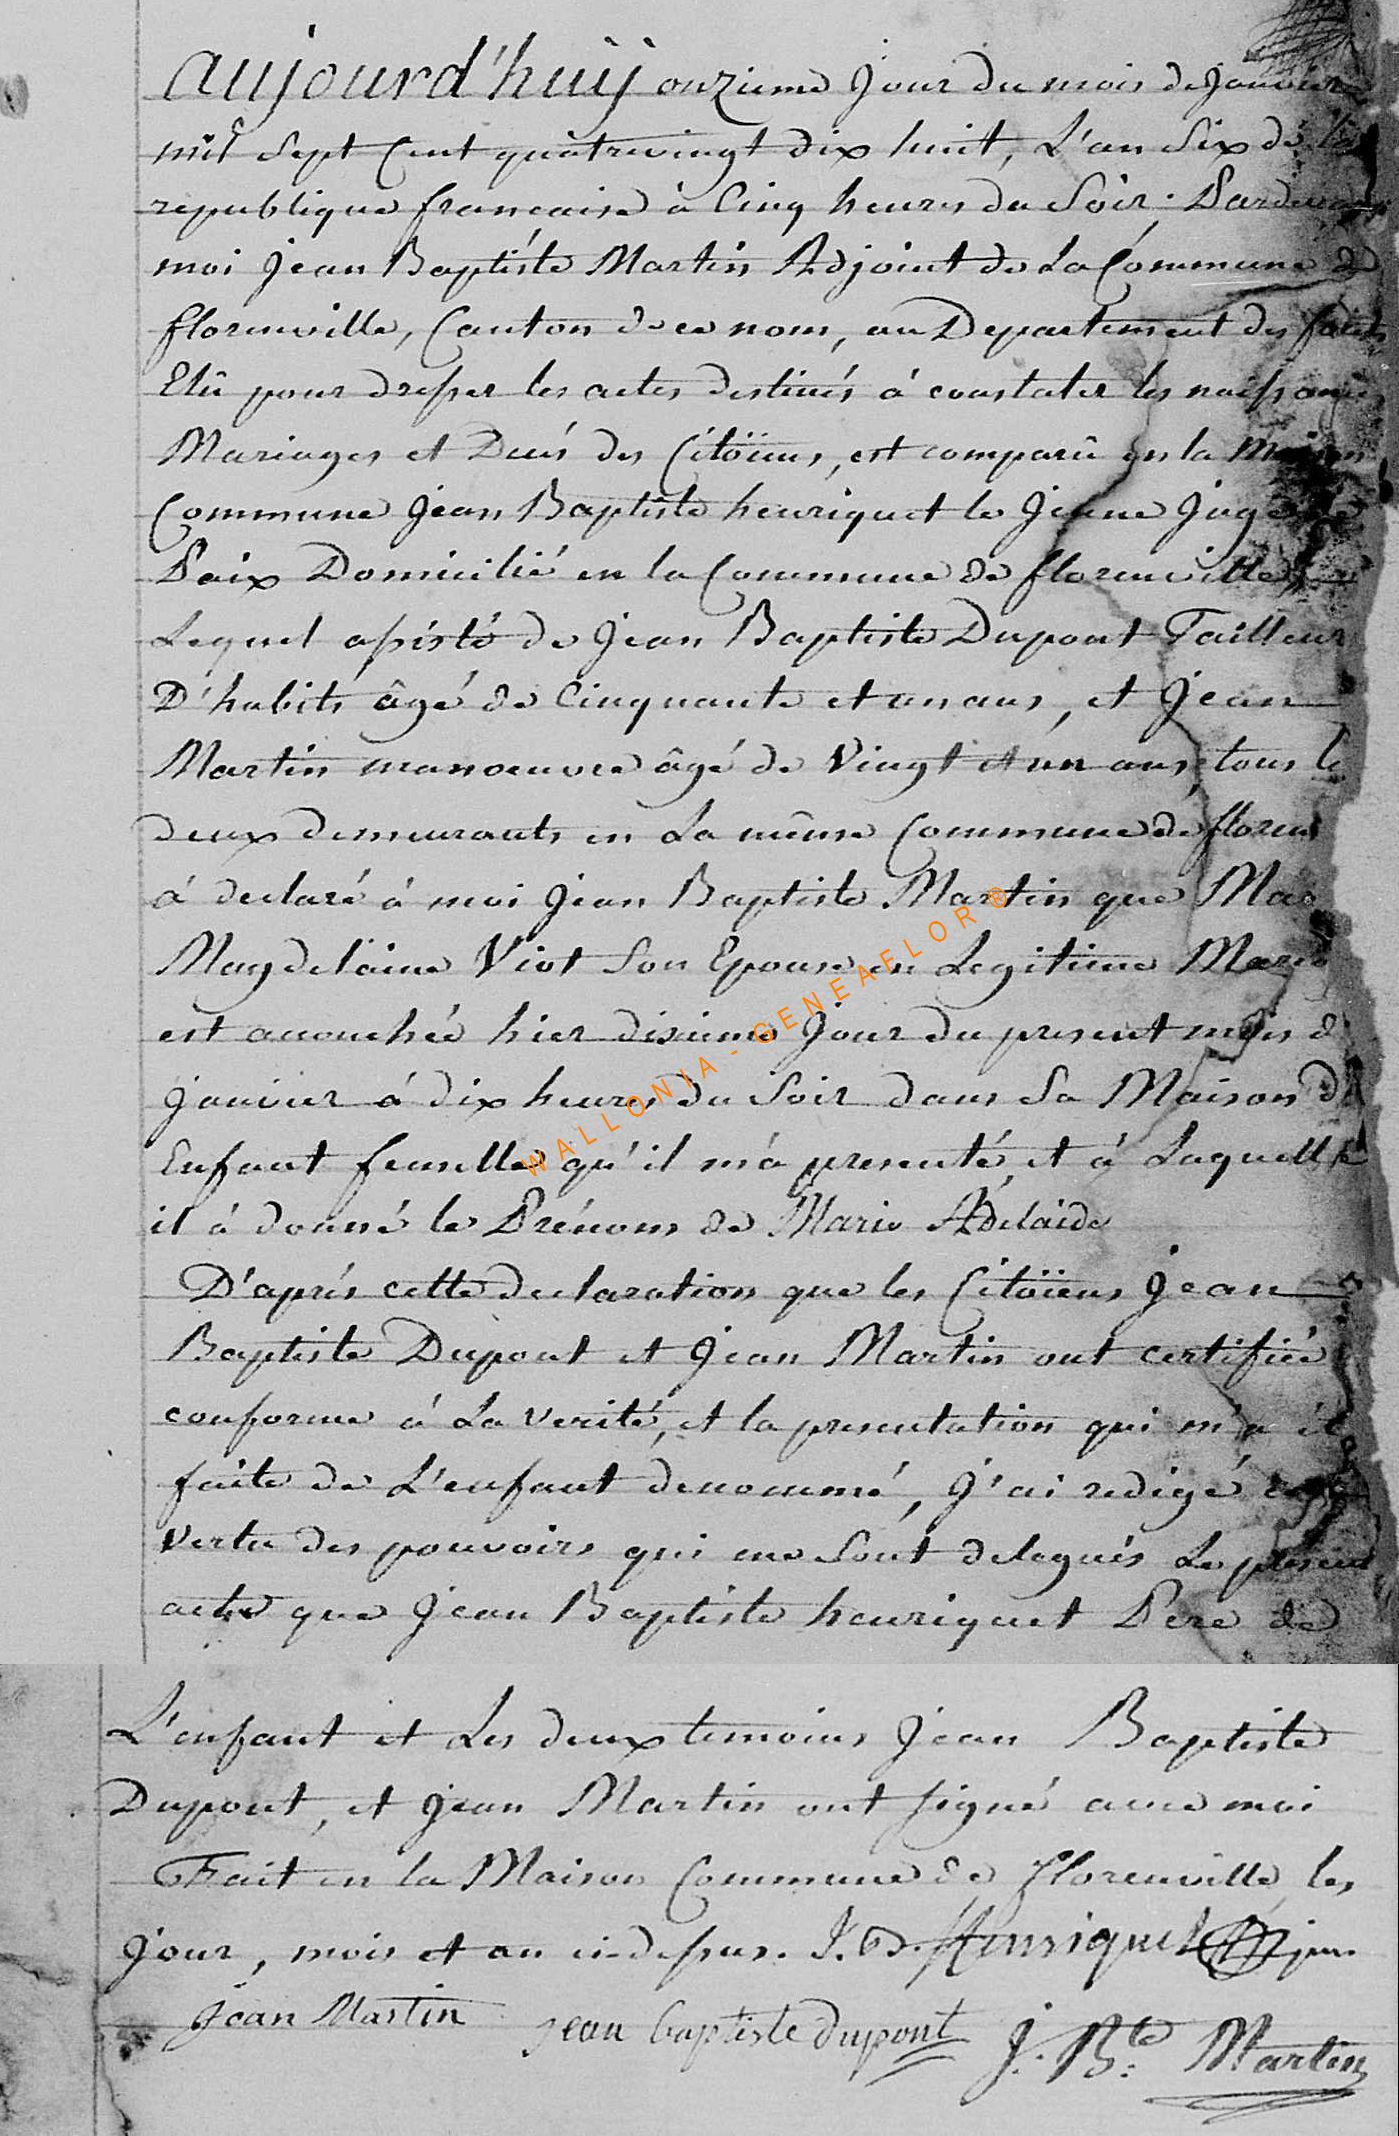 aujourd'huÿ onzieme Jour du mois de janvier
mil sept Cent quâtrevingt dix huit, L'an Six de la
republique francaise à Cinq heures du Soir. Pardevant
moi jean Baptiste Martin Adjoint de La Commune de
florenville, Canton de ce nom, au Departement des forets
Elû pour dresser les actes destinés à constater les naissances
Mariages et Decés des Citöiens, est comparû en la Maison
Commune jean Baptiste henriquet le Jeune Juge de
Paix Domicilié en la Commune de florenville
Lequel assisté de jean Baptiste Dupont Tailleur
D'habits âgé de Cinquante et un ans, et Jean
Martin manoeuvre âgé de Vingt et un ans, tous le
deux demeurants en La même Commune de floren
á declaré á moi jean Baptiste Martin que Mar
Magdelaine Viot Son Epouse en Legitime Mariag
est accouchée hier dixieme Jour du present mois d
janvier á dix heures du Soir dans Sa Maison d'
Enfant femelle qu'il m'á presenté, et á Laquelle
il á donné les Prénoms de Marie Adelaide
D'aprés cette declaration que les Citöïens Jean
Baptiste Dupont et jean Martin ont certifiée
conforme á La verité, et la presentation qui m'a été
faite de L'enfant denommé, J'ai redigé en
vertu des pouvoirs qui me Sont delegués Le present
acte que Jean Baptiste henriquet Pere de
L'enfant et Les deux temoins Jean Baptiste
Dupont, et jean Martin ont signé avec moi
Fait en la Maison Commune de florenville les
Jour, mois et an ci-dessus. J. B. Henriquet jeu.
Jean Martin jean baptiste dupont J. Bte. Martin
WALLONIA - GENEAFLOR ®